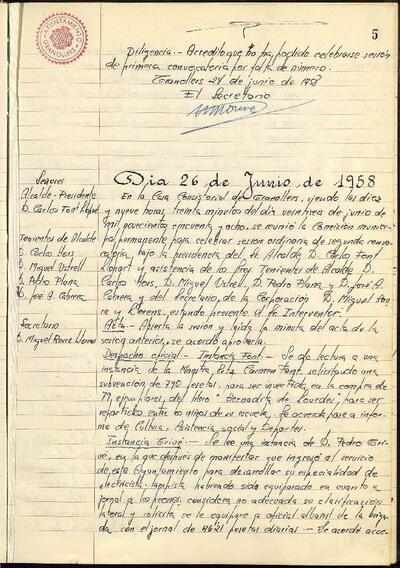 AYUNTAMIENTO
GRANOLLERS
5
Diligencia.- Acredito que no ha podido celebrarse sesión
de primera convocatoria por falta de número.
Granollers 24 de junio de 1958
El Secretario
Día 26 de Junio de 1958
Señores
Alcalde-Presidente
D. Carlos Font Llopart
Tenientes de Alcalde
D. Carlos
D. Miguel Ustrell
D. Pedro Plana
D. José A. Cabrera
Secretario
D. Miguel
En la Casa Consistorial de Granollers, siendo las diez
y nueve horas treinta minutos del día veintiseis de junio de
mil novecientos cincuenta y ocho, se reunió la Comisión munici-
pal permanente para celebrar sesión ordinaria de segunda convo-
catoria, bajo la presidencia del Sr. Alcalde D. Carlos Font
Llopart y asistencia de los Srs. Tenientes de Alcalde D.
Carlos D. Miguel Ustrell, D. Pedro Plana y D. José A.
Cabrera y del Secretario, de la Corporación D. Miguel
y Llorens, estando presente el Sr. Interventor.
Acta.- Abierta la sesión y leída la minuta del acta de la
sesión anterior, se acordó aprobarla.
Despacho oficial.- Instancia Font.- Se da lectura a una
instancia de la Maestra, Srta. Carmen Font, solicitando una
subvención de 790 pesetas, para ser invertida en la compra de
79 ejemplares del libro "Bernadita de Lourdes" para ser
repartidos entre los niños de su escuela. Se acuerda pase a infor-
me de Cultura, Asistencia social y Deportes.
Instancia Trivé.- Se lee una instancia de D. Pedro Tri-
vé, en la que después de manifestar que ingresó al servicio
de este Ayuntamiento para desarrollar su especialidad de
electricista-lampista habiendo sido equiparado en cuanto a
jornal a los peones, considera no adecuada su clasificación
laboral y solicita se le equipare a oficial albañil de la briga-
da con el jornal de 46'21 pesetas diarias.- Se acordó acce-